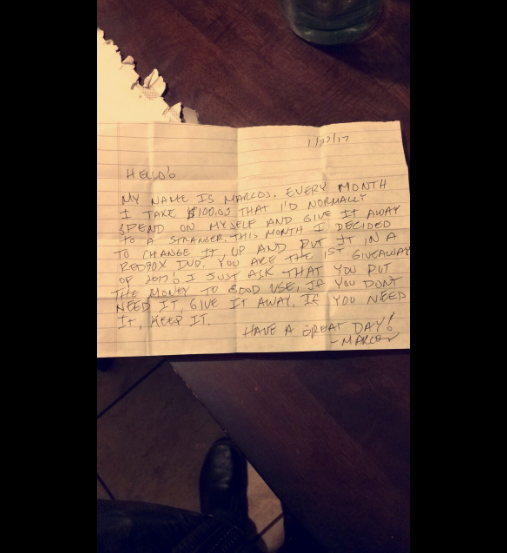 1/17/17
HELLO!
MY NAME IS MARCOS. EVERY MONTH
I TAKE $100.00 THAT I'D NORMALLY
SPEND ON MYSELF AND GIVE IT AWAY
TO A STRANGER. THIS MONTH I DECIDED
TO CHANGE IT UP AND PUT IT IN A
REDBOX DVD. YOU ARE THE 1ST GIVEAWAY
OF 2017! I JUST ASK THAT YOU PUT
THE MONEY TO GOOD USE, IF YOU DON'T
NEED IT, GIVE IT AWAY. IF YOU NEED
IT, KEEP IT.
HAVE A GREAT DAY!
-MARCOS